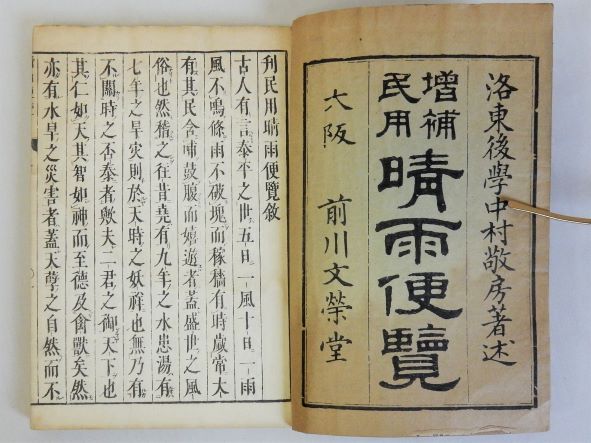 洛東後學中村敬房著述
增補
民用
晴雨便覽
大阪 前川文榮堂
刊民用晴雨便覽敘
古人有言泰平之世五日一風十日一雨
風不鳴條雨不破塊而稼穡有時歲常大
有其民含哺鼓腹而嬉遊者蓋盛世之風
俗也然稽之往昔堯有九年之水患湯有
七年之旱災則於天時之妖祥也無乃有
不關時之否泰者歟夫二君之御天下也
其仁如天其智如神而至德及禽獸矣然
亦有水旱之災害者蓋天孽之自然而不